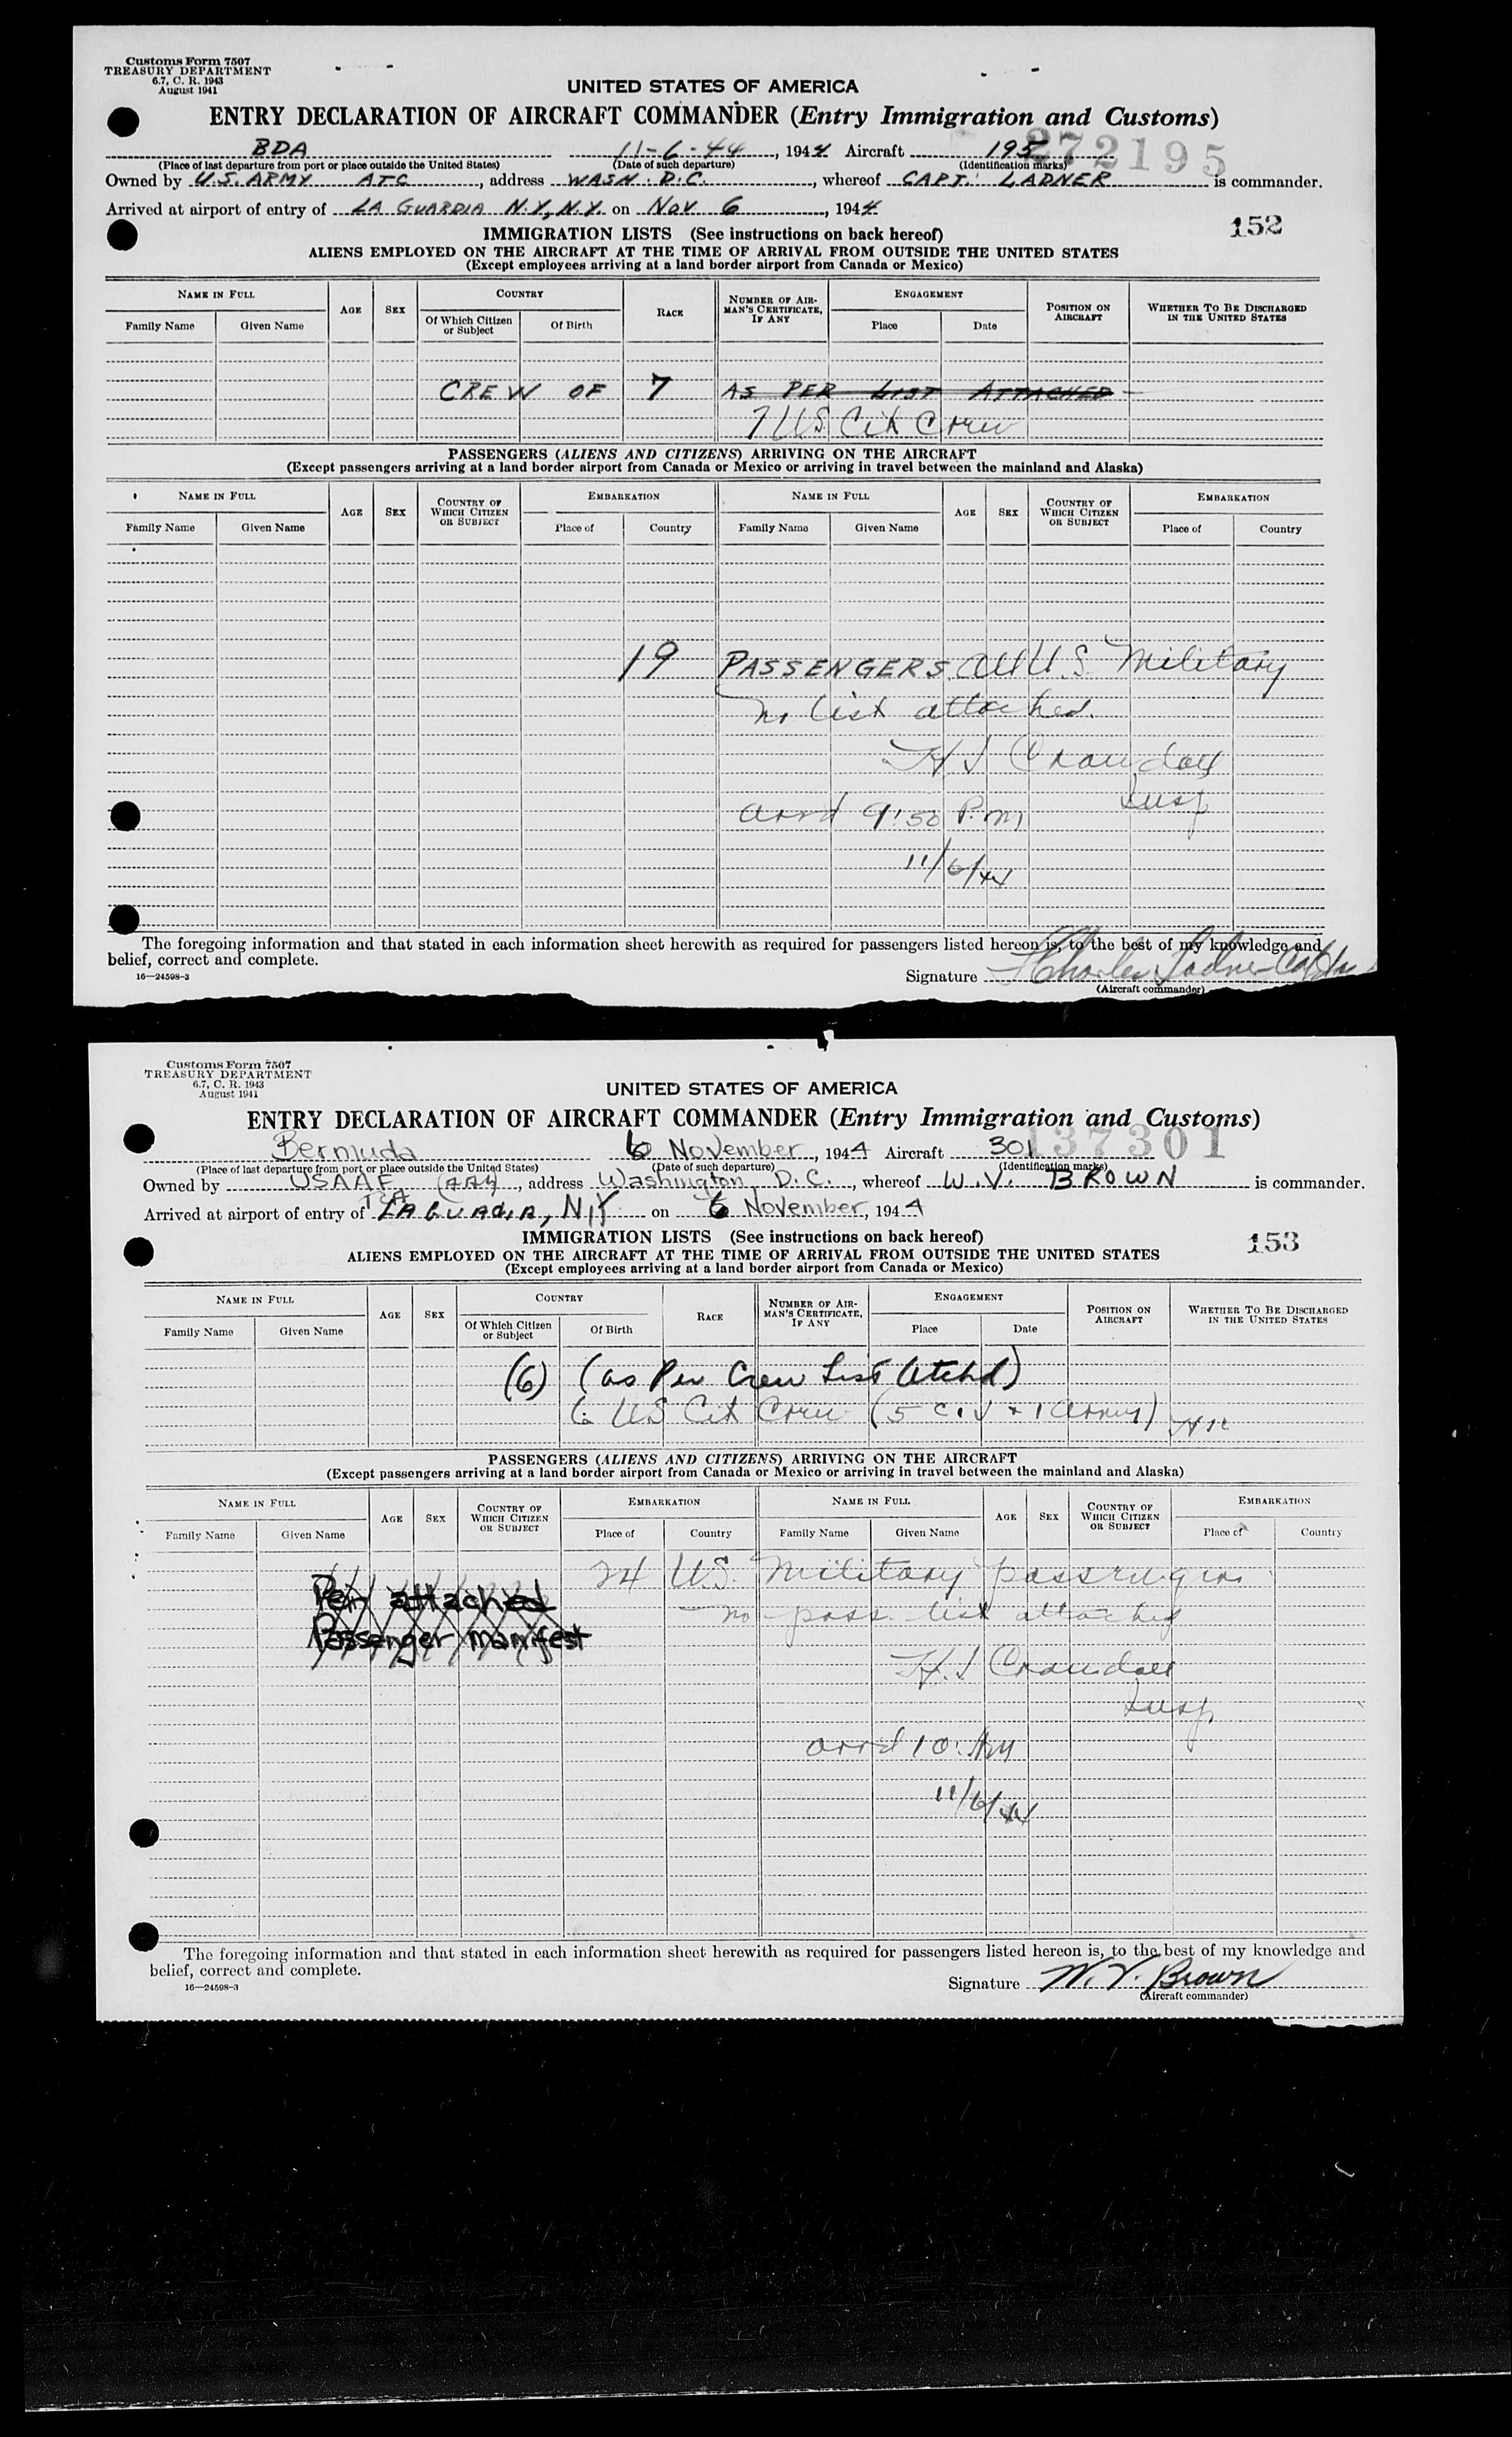 Customs Form 7507
TREASURY DEPARTMENT
6.7, C. R. 1943
August 1941
UNITED STATES OF AMERICA
ENTRY DECLARATION OF AIRCRAFT COMMANDER (Entry Immigration and Customs)
272195
BDA 11-6-44, 1944 Aircraft 195
(Place of last departure from port or place outside the United States) (Date of such departure) (Identification marks)
Owned by U.S. ARMY ATC, address WASH. D.C., whereof CAPT. LADNER is commander.
Arrived at airport of entry of LA GUARDIA N.Y, N.Y. on Nov 6, 1944
152
IMMIGRATION LISTS (See instructions on back hereof)
ALIENS EMPLOYED ON THE AIRCRAFT AT THE TIME OF ARRIVAL FROM OUTSIDE THE UNITED STATES
(Except employees arriving at a land border airport from Canada or Mexico)
NAME IN FULL AGE SEX COUNTRY RACE NUMBER OF AIRMAN'S CERTIFICATE, IF ANY ENGAGEMENT POSITION ON AIRCRAFT WHETHER TO BE DISCHARGED IN THE UNITED STATES
Family Name Given Name Of Which Citizen or Subject Of Birth Place Date
CREW OF 7 AS PER LIST ATTACHED
7 US Cit Crew
PASSENGERS (ALIENS AND CITIZENS) ARRIVING ON THE AIRCRAFT
(Except passengers arriving at a land border airport from Canada or Mexico or arriving in travel between the mainland and Alaska)
NAME IN FULL AGE SEX COUNTRY OF WHICH CITIZEN OR SUBJECT EMBARKATION NAME IN FULL AGE SEX COUNTRY OF WHICH CITIZEN OR SUBJECT EMBARKATION
Family Name Given Name Place of Country Family Name Given Name Place of Country
19 PASSENGERS All U.S. Military
no list attached.
H J Crandall
Insp
arrd 9:50 P.m
11/6/44
The foregoing information and that stated in each information sheet herewith as required for passengers listed hereon is, to the best of my knowledge and
belief, correct and complete.
16—24598-3
Signature Charles Ladner
(Aircraft commander)
Customs Form 7507
TREASURY DEPARTMENT
6.7, C. R. 1943
August 1941
UNITED STATES OF AMERICA
ENTRY DECLARATION OF AIRCRAFT COMMANDER (Entry Immigration and Customs)
137301
Bermuda 6 November, 1944 Aircraft 301
(Place of last departure from port or place outside the United States) (Date of such departure) (Identification marks)
Owned by USAAF, address Washington, D.C., whereof W.V. BROWN is commander.
Arrived at airport of entry of LAGUADIA, N.Y. on 6 November, 1944
153
IMMIGRATION LISTS (See instructions on back hereof)
ALIENS EMPLOYED ON THE AIRCRAFT AT THE TIME OF ARRIVAL FROM OUTSIDE THE UNITED STATES
(Except employees arriving at a land border airport from Canada or Mexico)
NAME IN FULL AGE SEX COUNTRY RACE NUMBER OF AIRMAN'S CERTIFICATE, IF ANY ENGAGEMENT POSITION ON AIRCRAFT WHETHER TO BE DISCHARGED IN THE UNITED STATES
Family Name Given Name Of Which Citizen or Subject Of Birth Place Date
(6) (as Per Crew List Atchd)
6 US Cit Crew (5 civ + 1 army)
PASSENGERS (ALIENS AND CITIZENS) ARRIVING ON THE AIRCRAFT
(Except passengers arriving at a land border airport from Canada or Mexico or arriving in travel between the mainland and Alaska)
NAME IN FULL AGE SEX COUNTRY OF WHICH CITIZEN OR SUBJECT EMBARKATION NAME IN FULL AGE SEX COUNTRY OF WHICH CITIZEN OR SUBJECT EMBARKATION
Family Name Given Name Place of Country Family Name Given Name Place of Country
24 U.S. Military passengers
Per attached
no pass. list attached
Passenger manifest
H.J Crandall
Insp.
arrd 10: AM
11/6/44
The foregoing information and that stated in each information sheet herewith as required for passengers listed hereon is, to the best of my knowledge and
belief, correct and complete.
16—24598-3
Signature W. V. Brown
(Aircraft commander)